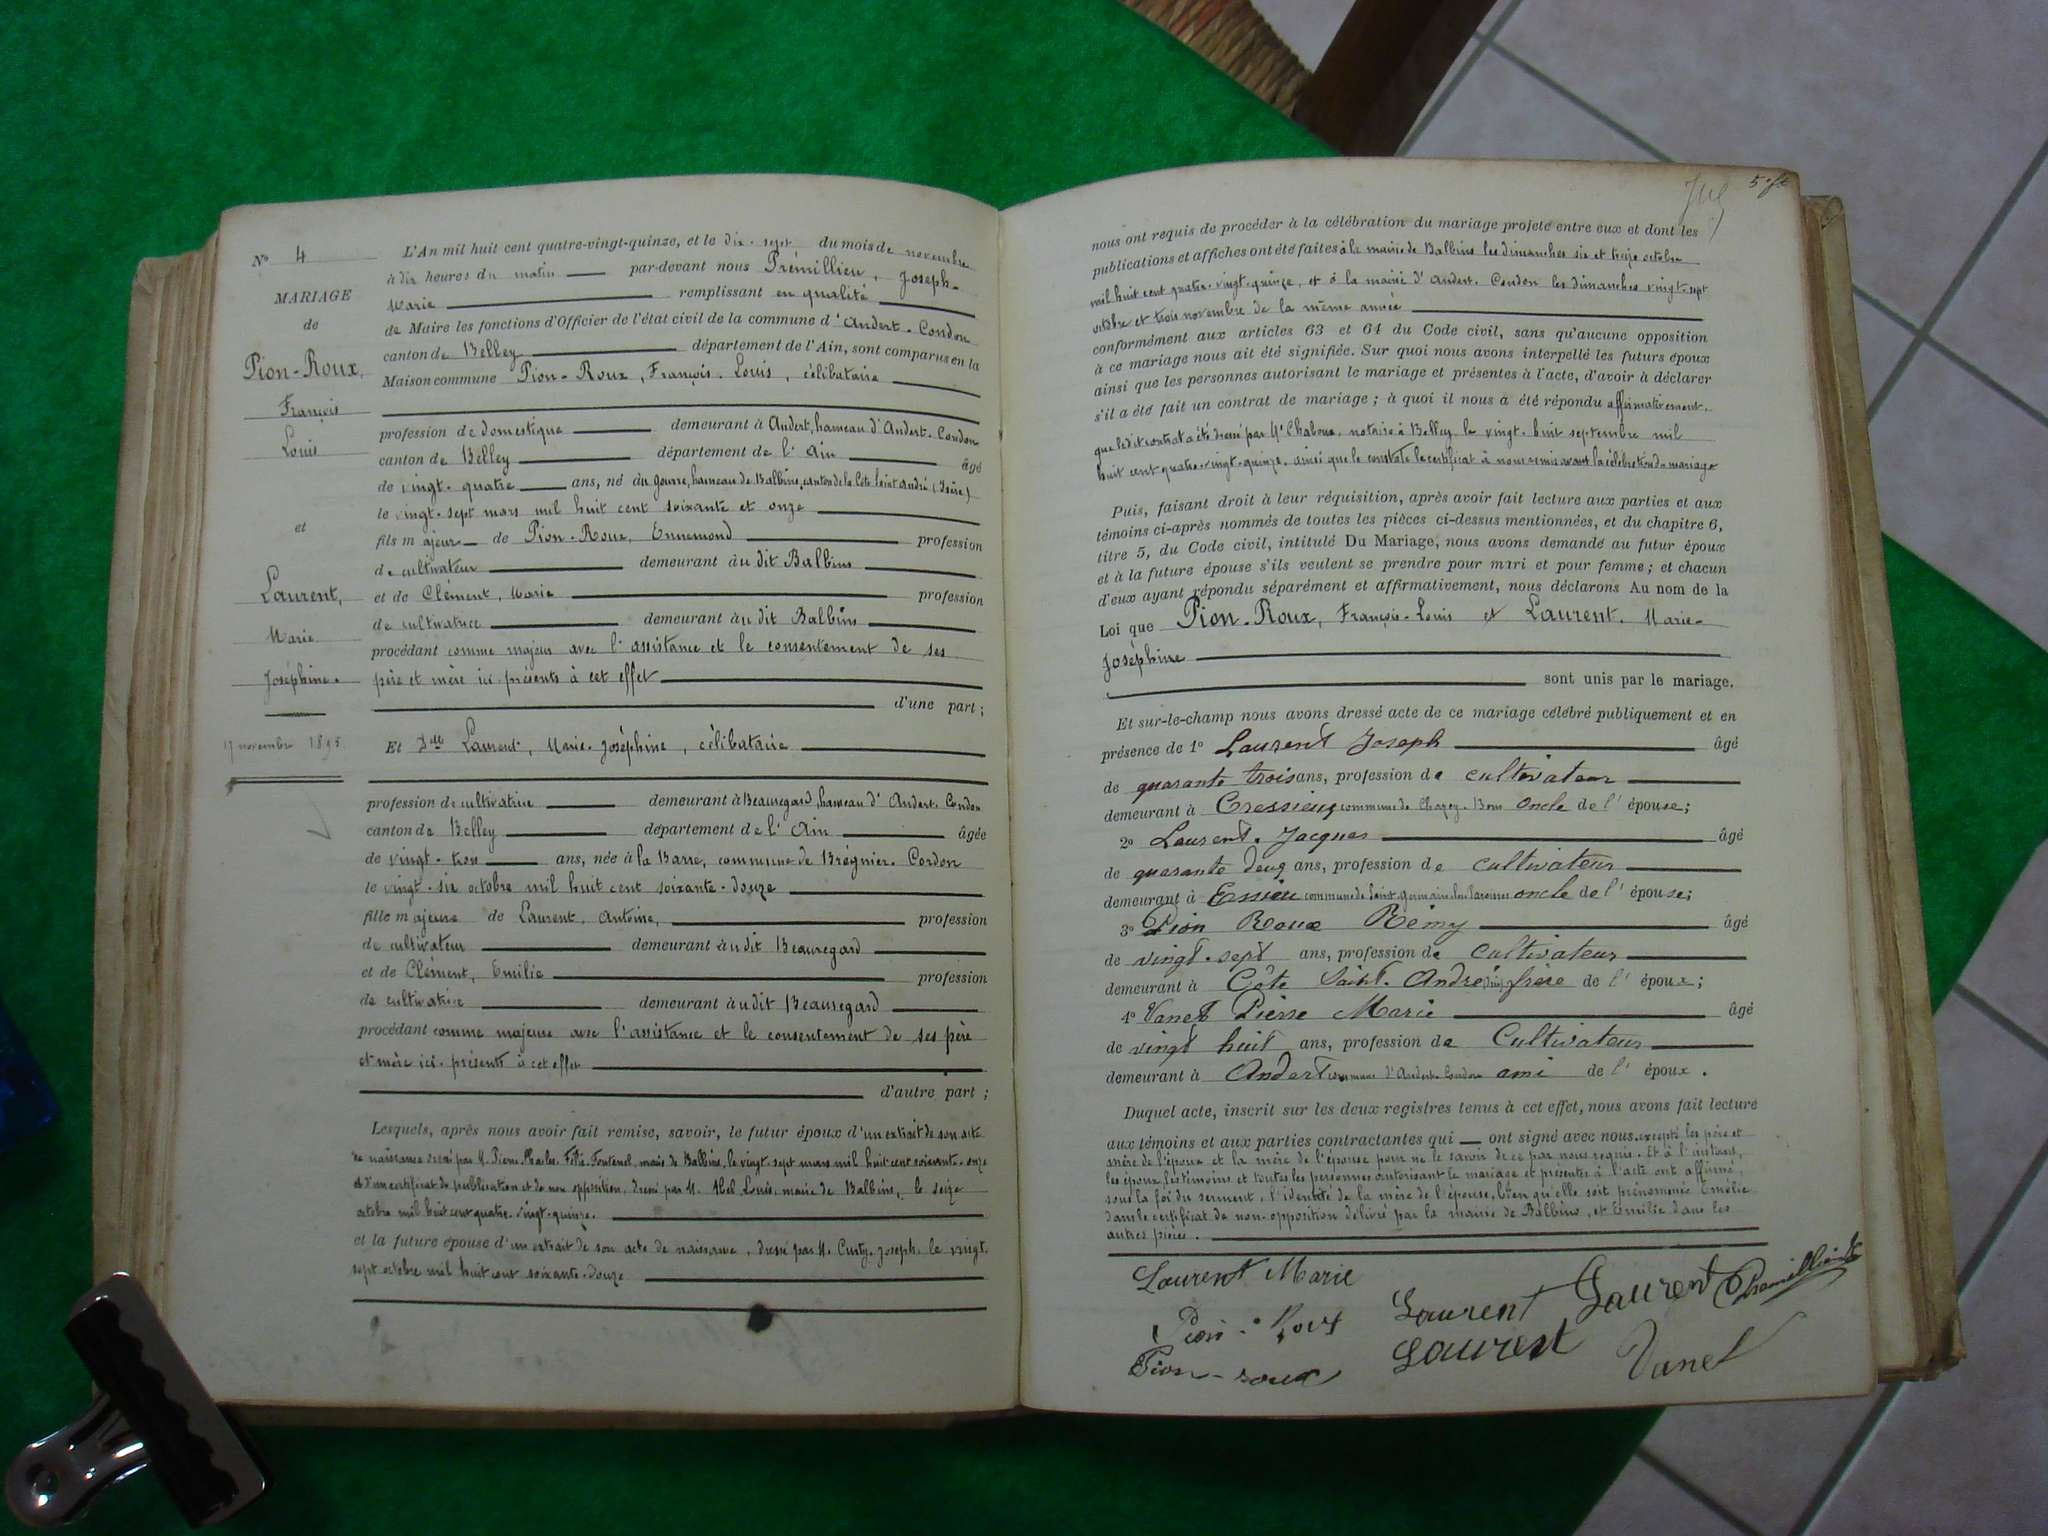 N° 4
MARIAGE
de
Pion-Roux,
François
Louis
et
Laurent,
Marie
Joséphine.
17 novembre 1895
L'An mil huit cent quatre-vingt-quinze, et le dix-sept du mois de novembre
à dix heures du matin par-devant nous Prémillieu, Joseph-
Marie remplissant en qualité
de Maire les fonctions d'Officier de l'état civil de la commune d'Andert-Condon
canton de Belley département de l'Ain, sont comparus en la
Maison commune Pion-Roux, François-Louis, célibataire
profession de domestique demeurant à Andert, hameau d'Andert-Condon
canton de Belley département de l'Ain âgé
de vingt-quatre ans, né au hameau de Balbins, canton de la Côte Saint André (Isère)
le vingt-sept mars mil huit cent soixante et onze
fils majeur de Pion-Roux, Ennemond profession
de cultivateur demeurant àudit Balbins
et de Clément, Marie profession
de cultivatrice demeurant àudit Balbins
procédant comme majeur avec l'assistance et le consentement de ses
père et mère ici présents à cet effet
d'une part;
Et Dlle Laurent, Marie-Joséphine, célibataire
profession de cultivatrice demeurant à Beauregard, hameau d'Andert-Condon
canton de Belley département de l'Ain âgée
de vingt-trois ans, née à la Barre, commune de Brégnier-Cordon
le vingt-six octobre mil huit cent soixante-douze
fille majeure de Laurent, Antoine, profession
de cultivateur demeurant àudit Beauregard
et de Clément, Emilie profession
de cultivatrice demeurant àudit Beauregard
procédant comme majeure avec l'assistance et le consentement de ses père
et mère ici présents à cet effet
d'autre part;
Lesquels, après nous avoir fait remise, savoir, le futur époux d'un extrait de son acte
de naissance dressé par M. Pierre Charles Félix Fontenel, maire de Balbins, le vingt-sept mars mil huit cent soixante-onze
et d'un certificat de publication et de non opposition, dressé par M. Abel Louis, maire de Balbins, le seize
octobre mil huit cent quatre-vingt-quinze.
et la future épouse d'un extrait de son acte de naissance, dressé par M. Curty, Joseph, le vingt-
sept octobre mil huit cent soixante-douze
5
nous ont requis de procéder à la célébration du mariage projeté entre eux et dont les
publications et affiches ont été faites à la mairie de Balbins les dimanches six et treize octobre
mil huit cent quatre-vingt-quinze, et à la mairie d'Andert-Condon les dimanches vingt-sept
octobre et trois novembre de la même année
conformément aux articles 63 et 64 du Code civil, sans qu'aucune opposition
à ce mariage nous ait été signifiée. Sur quoi nous avons interpellé les futurs époux
ainsi que les personnes autorisant le mariage et présentes à l'acte, d'avoir à déclarer
s'il a été fait un contrat de mariage; à quoi il nous a été répondu affirmativement.
que ledit contrat a été dressé par Me Chaboux, notaire à Belley le vingt-huit septembre mil
huit cent quatre-vingt-quinze, ainsi que le constate le certificat à nous remis avant la célébration du mariage
Puis, faisant droit à leur réquisition, après avoir fait lecture aux parties et aux
témoins ci-après nommés de toutes les pièces ci-dessus mentionnées, et du chapitre 6,
titre 5, du Code civil, intitulé Du Mariage, nous avons demandé au futur époux
et à la future épouse s'ils veulent se prendre pour mari et pour femme; et chacun
d'eux ayant répondu séparément et affirmativement, nous déclarons Au nom de la
Loi que Pion-Roux, François-Louis et Laurent, Marie-
Joséphine
sont unis par le mariage.
Et sur-le-champ nous avons dressé acte de ce mariage célébré publiquement et en
présence de 1° Laurent Joseph âgé
de quarante trois ans, profession de cultivateur
demeurant à Cressieux commune de Chazey-Bons oncle de l'épouse;
2° Laurent Jacques âgé
de quarante deux ans, profession de cultivateur
demeurant à Essieu commune de Saint Germain les Paroisses oncle de l'épouse;
3° Pion Roux Rémy âgé
de vingt-sept ans, profession de cultivateur
demeurant à Côte Saint-André (Isère) frère de l'époux;
4° Vanet Pierre Marie âgé
de vingt huit ans, profession de Cultivateur
demeurant à Andert commune d'Andert-Condon ami de l'époux.
Duquel acte, inscrit sur les deux registres tenus à cet effet, nous avons fait lecture
aux témoins et aux parties contractantes qui ont signé avec nous, excepté les père et
mère de l'époux et la mère de l'épouse pour ne le savoir de ce par nous requis. Et à l'instant,
les époux, les témoins et toutes les personnes autorisant le mariage et présentes à l'acte ont affirmé,
sous la foi du serment, l'identité de la mère de l'épouse, bien qu'elle soit prénommée Emélie
dans le certificat de non-opposition délivré par la mairie de Balbins, et Emilie dans les
autres pièces.
Laurent Marie
Laurent Laurent Prémillieu
Pion-Roux
Laurent Vanet
Pion-roux